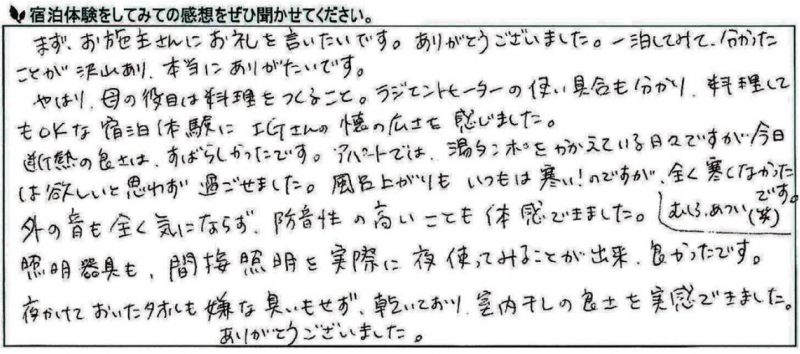 宿泊体験をしてみての感想をぜひ聞かせてください。
まず、お施主さんにお礼を言いたいです。ありがとうございました。一泊してみて、分かった
ことが沢山あり、本当にありがたいです。
やはり、母の役目は料理をつくること。ラジエントヒーターの使い具合も分かり、料理して
もOKな宿泊体験に さんの懐の広さを感じました。
断熱の良さは、すばらしかったです。アパートでは、湯タンポをかかえている日々ですが、今日
は欲しいと思わず過ごせました。風呂上がりもいつもは寒い!のですが、全く寒くなかった
です。
外の音も全く気にならず、防音性の高いことも体感できました。
むしろ、あつい(笑)
照明器具も、間接照明を実際に夜使ってみることが出来、良かったです。
夜かけておいたタオルも嫌な臭いもせず、乾いており、室内干しの良さを実感できました。
ありがとうございました。